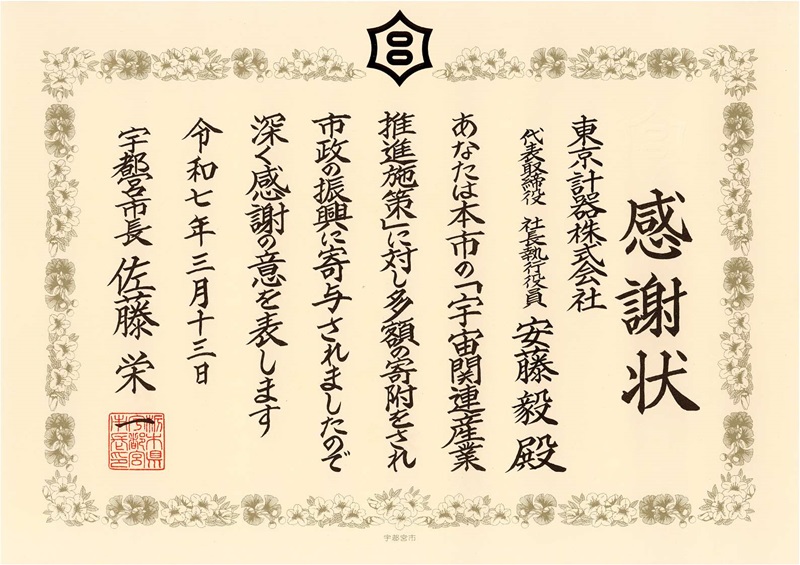 感謝状
東京計器株式会社
代表取締役 社長執行役員 安藤毅殿
あなたは本市の「宇宙関連産業
推進施策」に対し多額の寄附をされ
市政の振興に寄与されましたので
深く感謝の意を表します
令和七年三月十三日
宇都宮市長 佐藤栄一
栃木県
宇都宮
市長印
宇都宮市